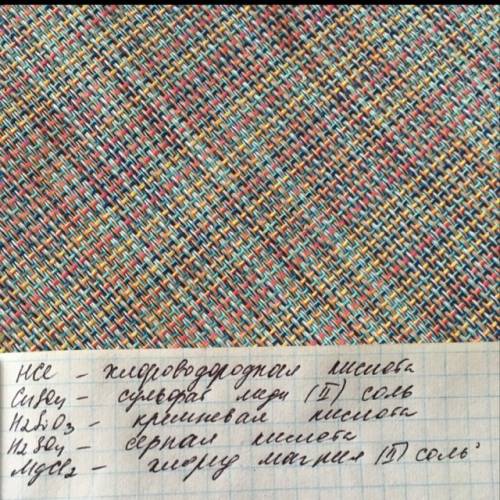 HCl - хлороводородная кислота
CuSO4 - сульфат меди (II) соль
H2SiO3 - кремневая кислота
H2SO4 - серная кислота
MgCl2 - хлорид магния (II) соль